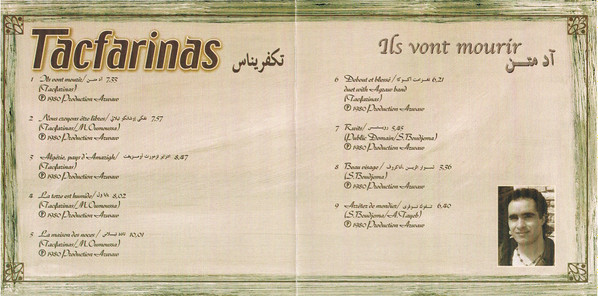 Tacfarinas تكفريناس
1 Ils vont mourir/ آد متـــن 7,33
(Tacfarinas)
℗ 1980 Production Azwaw
2 Nous croyons être libres/ 7,57
(Tacfarinas/M.Oumouna)
℗ 1980 Production Azwaw
3 Algérie, pays d'Amazigh/ 8,47
(Tacfarinas)
℗ 1980 Production Azwaw
4 La terre est humide/ 8,02
(Tacfarinas/M.Oumouna)
℗ 1980 Production Azwaw
5 La maison des noces/ 10,01
(Tacfarinas/M.Oumouna)
℗ 1980 Production Azwaw
Ils vont mourir
آد متـــن
6 Debout et blessé/ 6,21
duet with Agraw band
(Tacfarinas)
℗ 1980 Production Azwaw
7 5,45
(Public Domain/S.Boudjema)
℗ 1980 Production Azwaw
8 Beau visage/ 5,36
(S.Boudjema)
℗ 1980 Production Azwaw
9 Arrêter de mendier/ 6,40
(S.Boudjema/A.Tayeb)
℗ 1980 Production Azwaw